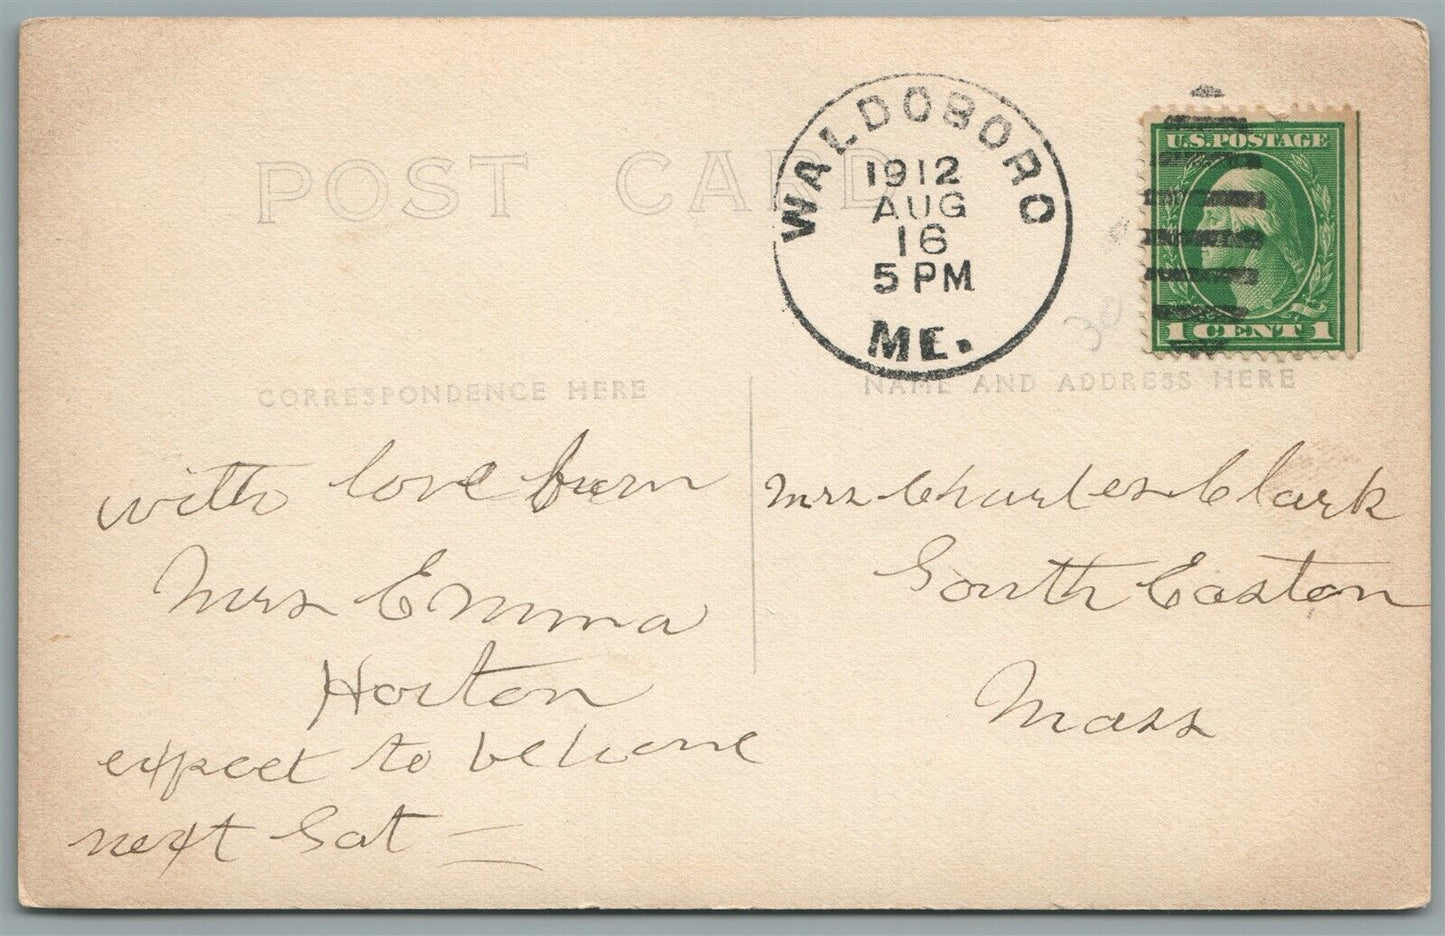 POST CARD
WALDOBORO
1912
AUG
16
5 PM
ME.
U.S. POSTAGE
1 CENT 1
30
CORRESPONDENCE HERE
NAME AND ADDRESS HERE
with love from
Mrs Emma
Horton
expect to be home
next Sat —
Mrs Charles Clark
South Easton
Mass